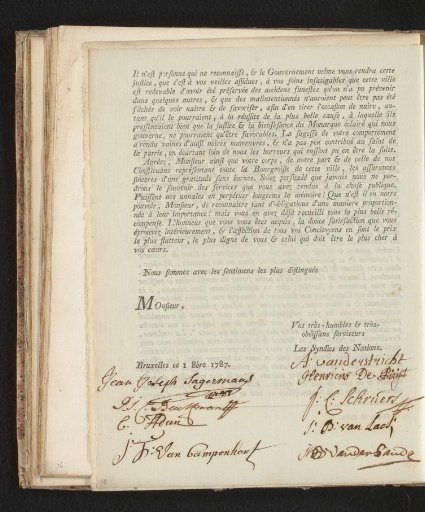 Il n'est personne qui ne reconnoisse, & le Gouvernement même vous rendra cette
justice, que c'est à vos veilles assidues, à vos soins infatigables que cette ville
est redevable d'avoir été préservée des accidens funestes qu'on n'a pu prévenir
dans quelques autres, & que des malintencionnés n'auroient peut être pas été
fâchés de voir naître & de favoriser, afin d'en tirer l'occasion de nuire, au-
tant qu'il le pourraient, à la réussite de la plus belle cause, à laquelle ils
pressentaient bien que la justice & la bienfaisance du Monarque éclairé qui nous
gouverne, ne pourraient qu'être favorables. La sagesse de votre comportement
a rendu vaines d'aussi noires manœuvres, & n'a pas peu contribué au salut de
la patrie, en écartant loin de nous les horreurs qui eussent pu en être la suite.
Agréez, Monsieur ainsi que votre corps, de notre part & de celle de nos
Constituans représentant toute la Bourgeoisie de cette ville, les assurances
sinceres d'une gratitude sans bornes. Soiez persuadé que jamais nous ne per-
drons le souvenir des services que vous avez rendus à la chose publique.
Puissent nos annales en perpétuer longtems la mémoire! Que n'est il en notre
pouvoir, Monsieur, de reconnaitre tant d'obligations d'une maniere proportion-
née à leur importance! mais vous en avez déjà recueilli tous la plus belle ré-
compense. l'Honneur que vous vous êtes acquis, la douce satisfaction que vous
éprouvez intérieurement, & l'affection de tous vos Concitoyens en sont le prix
le plus flatteur, le plus digne de vous & celui qui doit être le plus cher à
vos cœurs.
Nous sommes avec les sentimens les plus distingués
Monsieur,
Vos très-humbles & très-
obéissans serviteurs
Les Syndics des Nations.
Bruxelles ce 1 8bre 1787.
A: vanderstricht
Jean Joseph Sagermans
Henricus De
J: C: Schriers
J: B: van Lack
J: F: Van Campenhout
Vander Sande